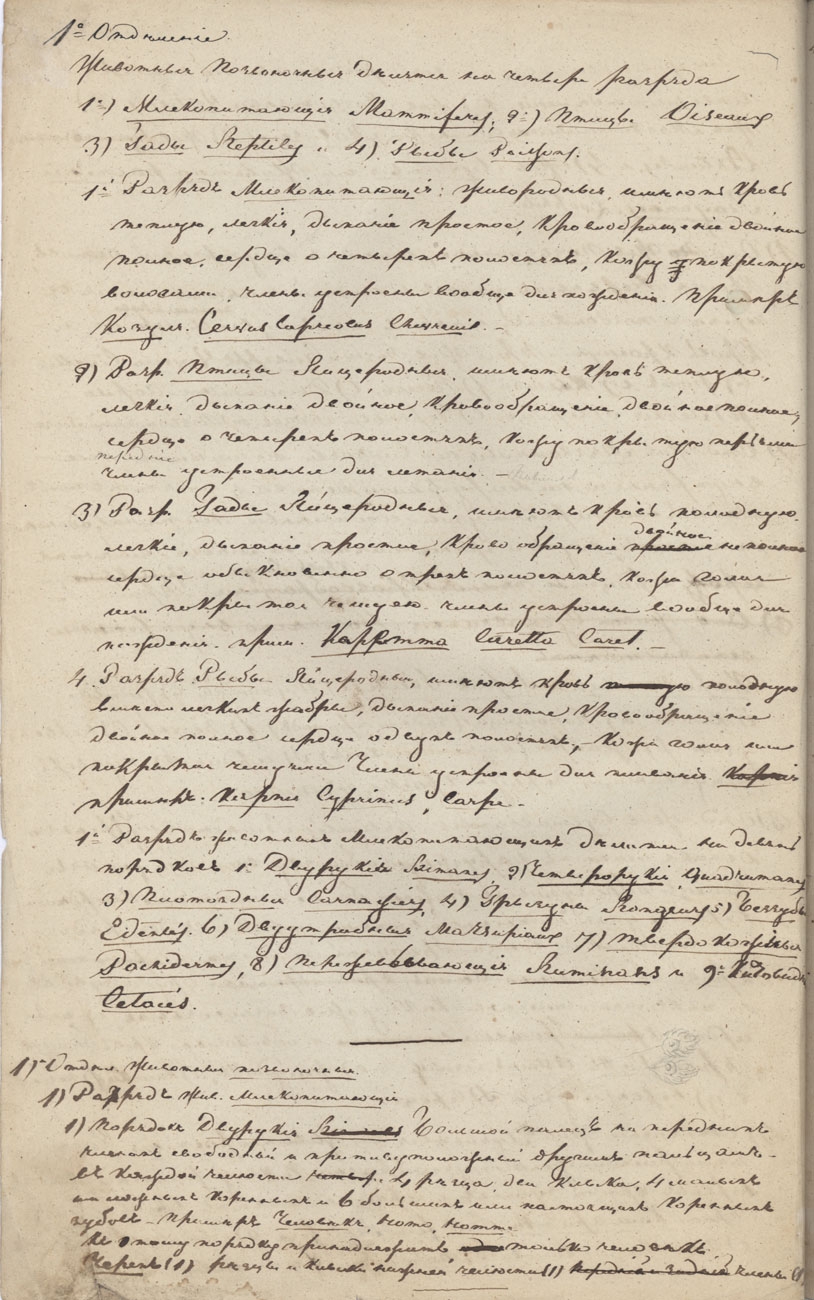 1º Отдѣленіе.
Животныя Позвоночныя дѣлятся на четыре разряда
1º) Млекопитающія Mammiferes, 2º) Птицы Oiseaux
3) Гады Reptiles 4) Рыбы Poissons.
1º Разрядъ Млекопитающія: живородныя, имѣютъ кровь
теплую, легкія, дыханіе простое, кровообращеніе двойное
полное, сердце о четырехъ полостяхъ, кожу покрытую
волосами, члены устроены вообще для хожденія. Примѣръ
Козуля. Cervus Capreolus Chevreuil. —
2) Разр. Птицы Яйцеродныя, имѣютъ кровь теплую,
легкія, дыханіе двойное, кровообращеніе двойное полное,
сердце о четырехъ полостяхъ, кожу покрытую перьями
передніе
члены устроенные для летанія. —
3) Разр. Гады Яйцеродныя, имѣютъ кровь холодную,
двойное
легкіе, дыханіе простое, кровообращеніе неполное
сердце обыкновенно о трехъ полостяхъ, кожа голая
или покрытая чешуею. члены устроены вообще для
хожденія. прим. Карретта Caretta Caret. —
4. Разрядъ Рыбы Яйцеродныя, имѣютъ кровь холодную
вмѣсто легкихъ жабры, дыханіе простое, кровообращеніе
двойное полное сердце о двухъ полостяхъ, — Кожа голая или
покрытая чешуями Члены устроены для плаванія. Карпія
примѣръ. Карпія Cyprinus, Carpe. —
1º Разрядъ животныхъ Млекопитающихъ дѣлится на девять
порядковъ 1º Двурукія Bimanes, 2º Четверорукія, Quadrumanes
3) Плотоядныя Carnassiers, 4) Грызуны Rongeurs 5) Беззубые
Edentés. 6) Двуутробныя Marsupiaux 7) твердокожныя
Pachidermes, 8) Пережевывающія Ruminans и 9º Китовидныя
Cetacés.
1º Отдѣл. Животныя позвоночныя.
1) Разрядъ Жив. Млекопитающія
1) Порядокъ Двурукія Bimanes Большой палецъ на переднихъ
членахъ свободный и противуположный другимъ пальцамъ —
въ каждой челюсти 4 рѣзца, два клыка, 4 малыхъ
или ложныхъ коренныхъ и 6 большихъ или настоящихъ коренныхъ
зубовъ — Примѣръ Человѣкъ, Homo, Homme.
Къ этому порядку принадлежитъ только человѣкъ.
Черепъ (1) рѣзцы и клыки нижней челюсти (1) передніе и задніе члены (1)